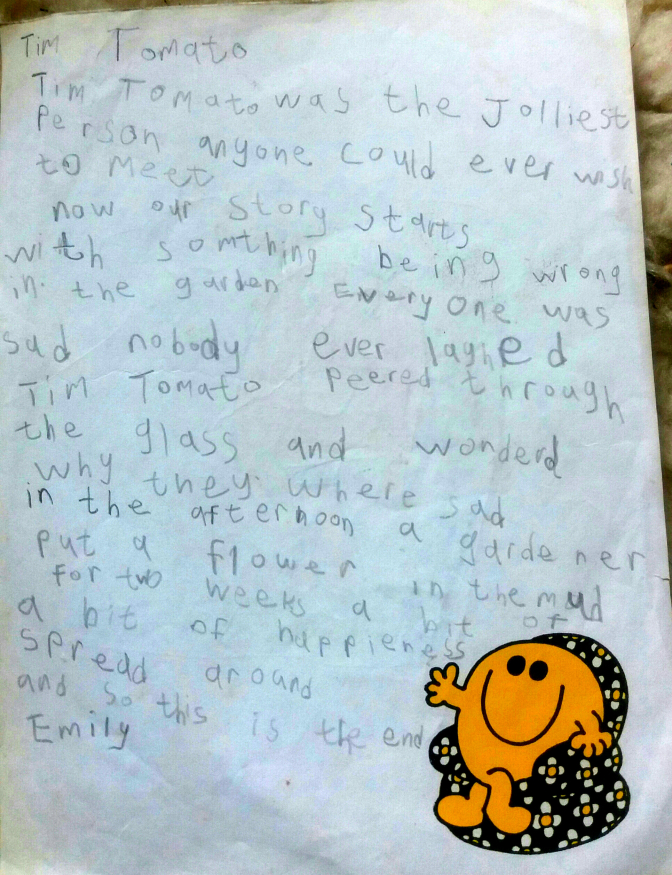 Tim Tomato
Tim Tomato was the Jolliest
Person anyone could ever wish
to meet
now our story starts
with somthing being wrong
in the garden Every one was
sad nobody ever laghed
Tim Tomato peered through
the glass and wonderd
why they where sad
in the afternoon a gardener
put a flower in the mud
for two weeks a bit of
a bit of happieness
spread around
and so this is the end
Emily